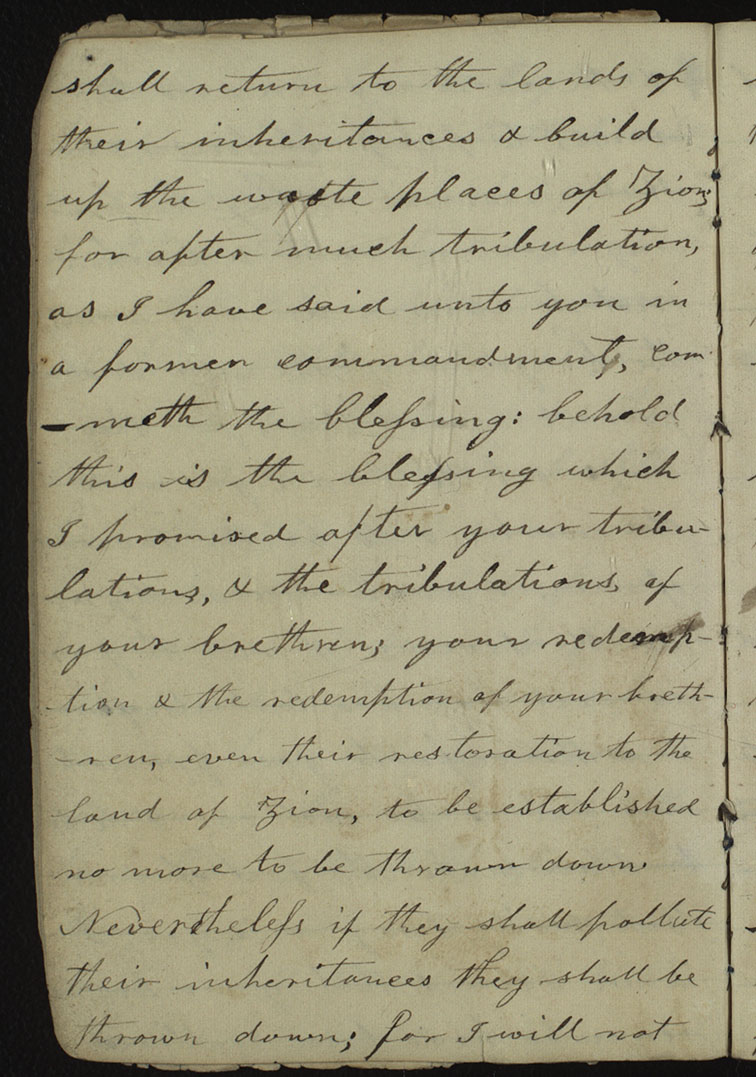 shall return to the lands of
their inheritances & build
up the waste places of Zion;
for after much tribulation,
as I have said unto you in
a former commandment, com
-meth the bleſsing: behold
this is the bleſsing which
I promised after your tribu-
lations, & the tribulations of
your brethren; your redemp-
tion & the redemption of your breth-
-ren, even their restoration to the
land of Zion, to be established
no more to be thrown down
Nevertheleſs if they shall pollute
their inheritances they shall be
thrown down; for I will not